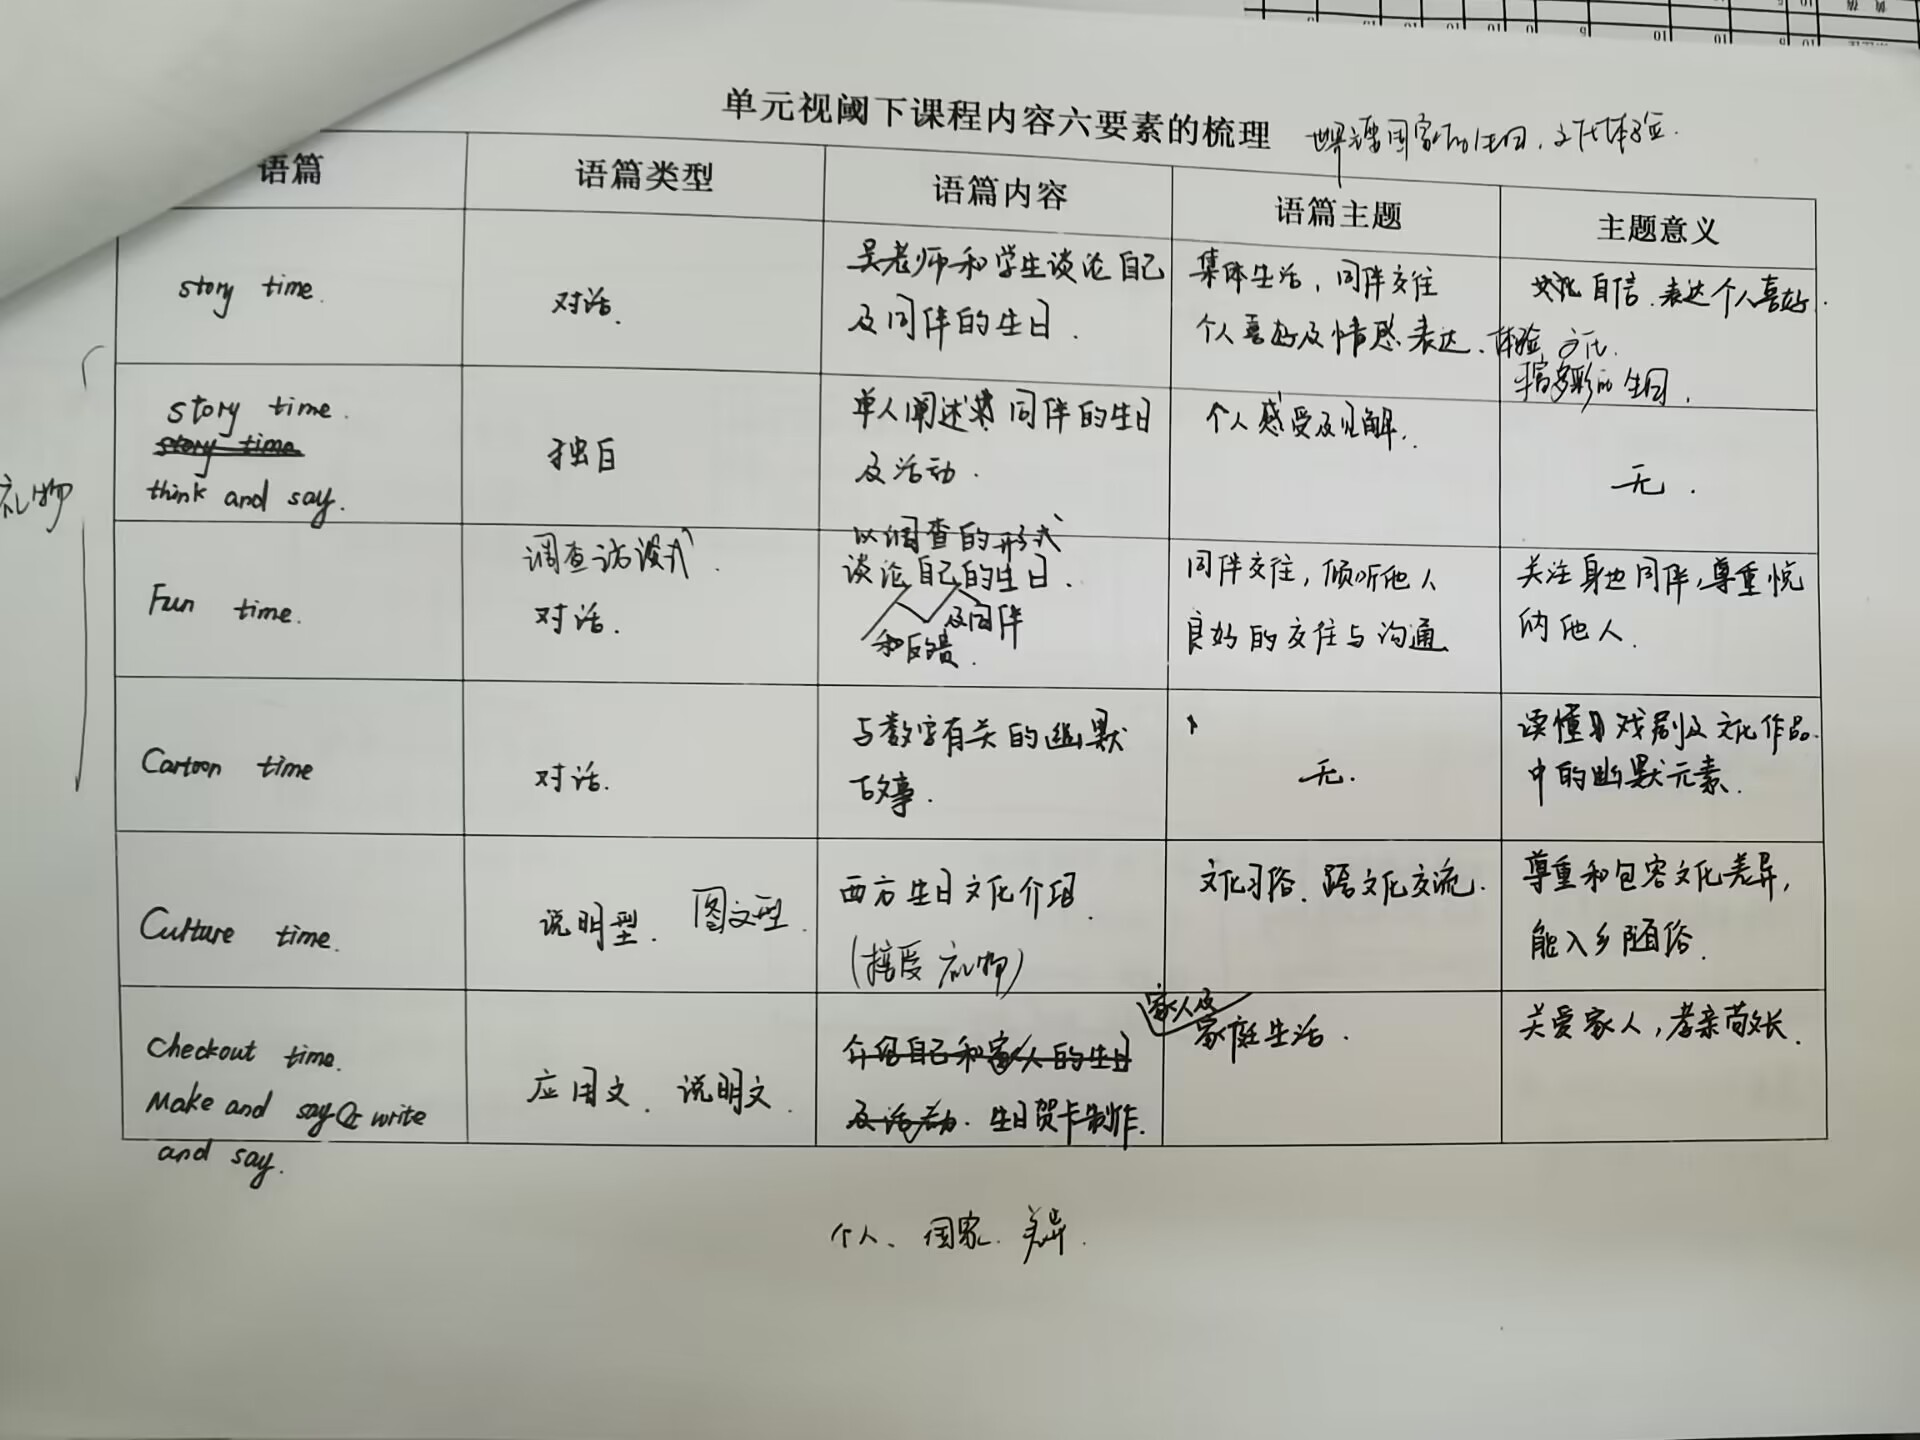 单元视阈下课程内容六要素的梳理
国家的生日，文化体验.
语篇 语篇类型 语篇内容 语篇主题 主题意义
story time. 对话. 吴老师和学生谈论自己 集体生活，同伴交往 文化自信、表达个人喜好.
及同伴的生日. 个人喜好及情感表达、体验文化.
丰富多彩的生日.
story time. 单人阐述 同伴的生日 个人感受及见解.
story time 独白 及活动. 无.
think and say.
礼物
调查访谈式. 以调查的形式
Fun time. 对话. 谈论自己的生日. 同伴交往，倾听他人 关注身边同伴，尊重悦
及同伴 良好的交往与沟通 纳他人.
和反馈.
Cartoon time 对话. 与数字有关的幽默 无. 读懂 戏剧及文化作品
故事. 中的幽默元素.
Culture time. 说明型. 图文型. 西方生日文化介绍. 文化习俗、跨文化交流. 尊重和包容文化差异，
(接受礼物) 能入乡随俗.
家人及
checkout time. 介绍自己和家人的生日 家庭生活. 关爱家人，孝亲敬长.
Make and say & write 应用文. 说明文. 及活动. 生日贺卡制作.
and say.
个人、国家. 差异.